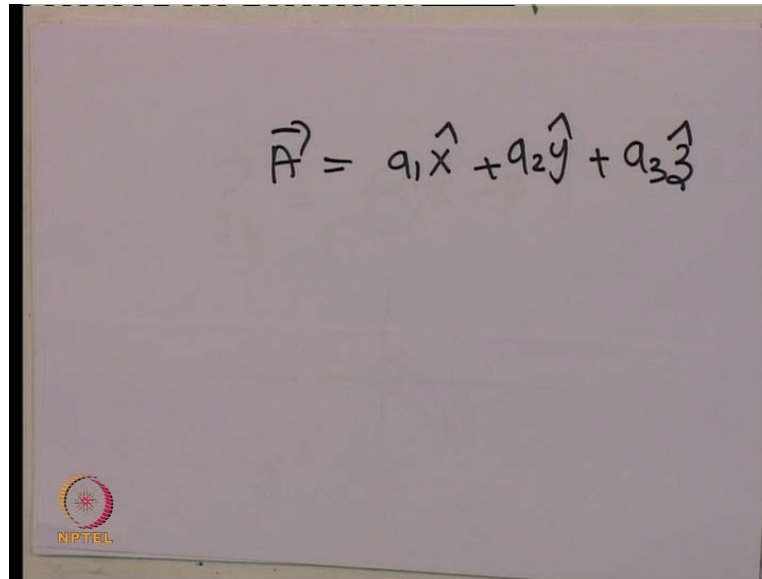 A⃗ = a₁x̂ + a₂ŷ + a₃ẑ
NPTEL